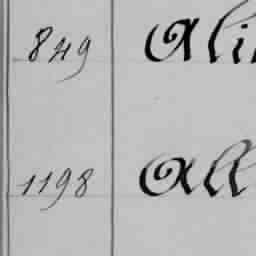 849 Ali
1198 All